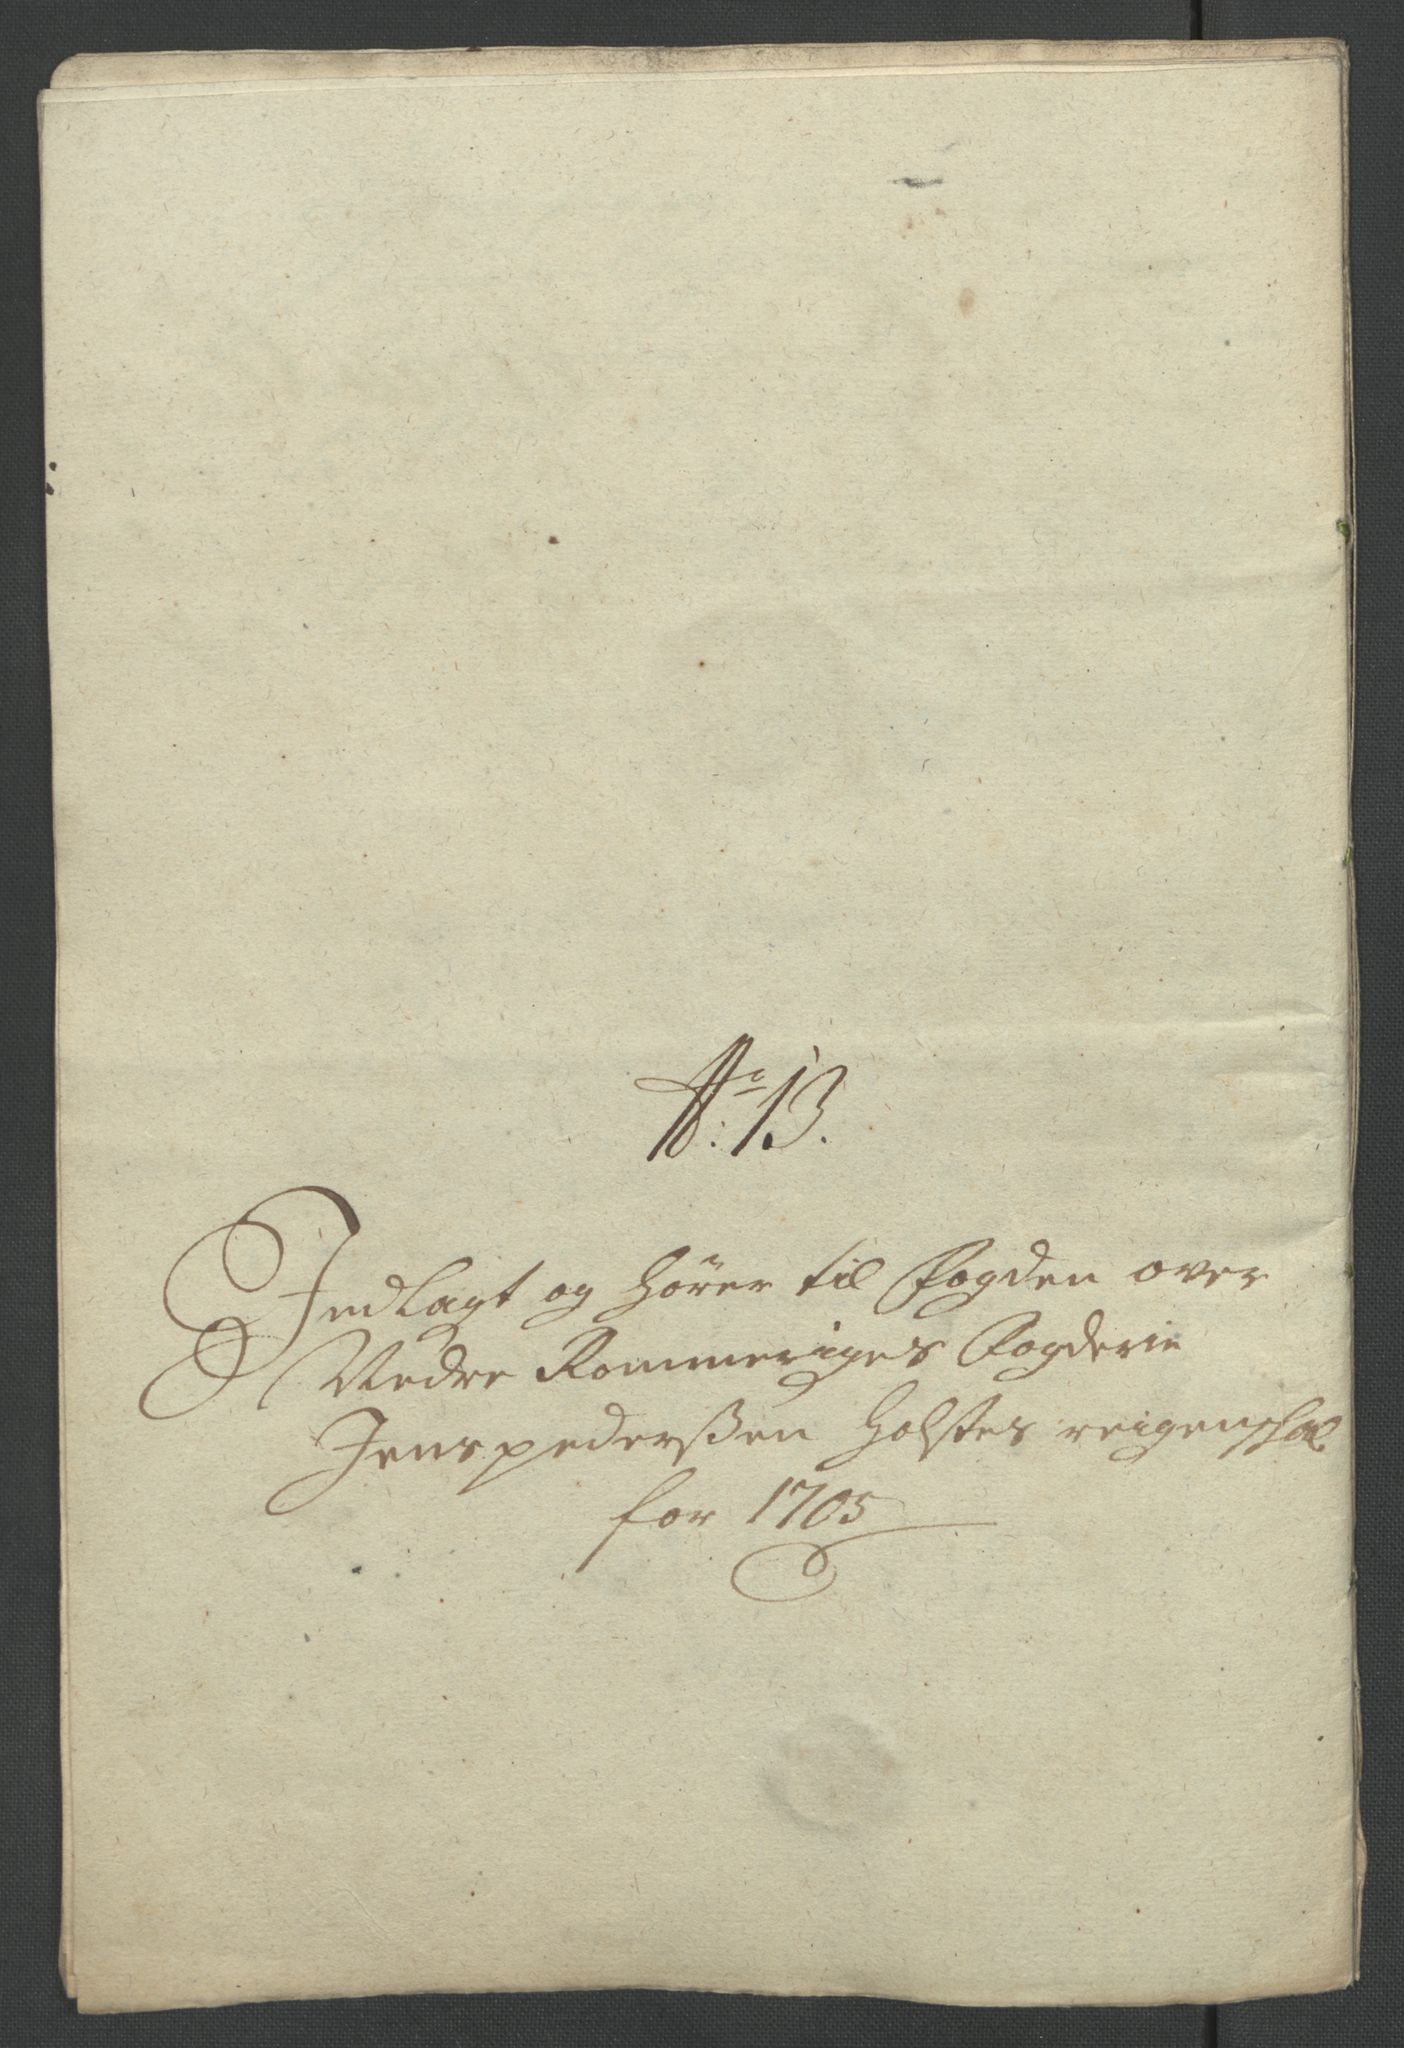 No: 13.
Indlagt og hörer til Fogden over
Nedre Rommeriges Fogderie
Jens pederßen Holstes reigenskab
for 1705